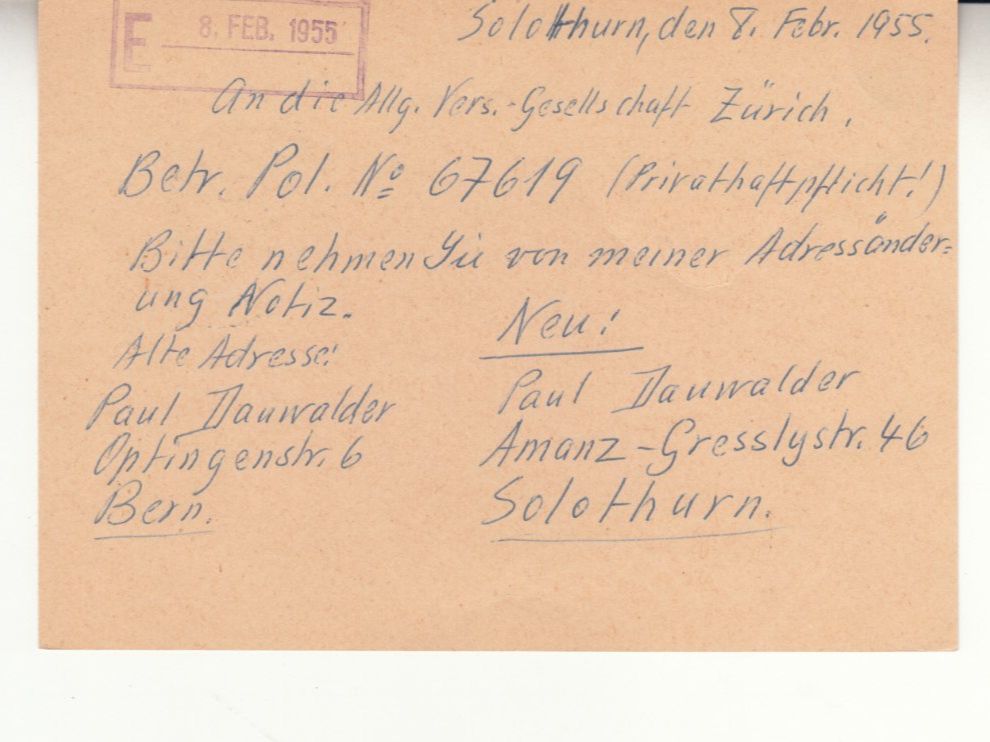 E 8. FEB. 1955
Solothurn, den 8. Febr. 1955.
An die Allg. Vers.-Gesellschaft Zürich.
Betr. Pol. № 67619 (Privathaftpflicht!)
Bitte nehmen Sie von meiner Adressänder=
ung Notiz.
Neu!
Alte Adresse:
Paul Dauwalder
Optingenstr. 6
Bern.
Paul Dauwalder
Amanz-Gresslystr. 46
Solothurn.